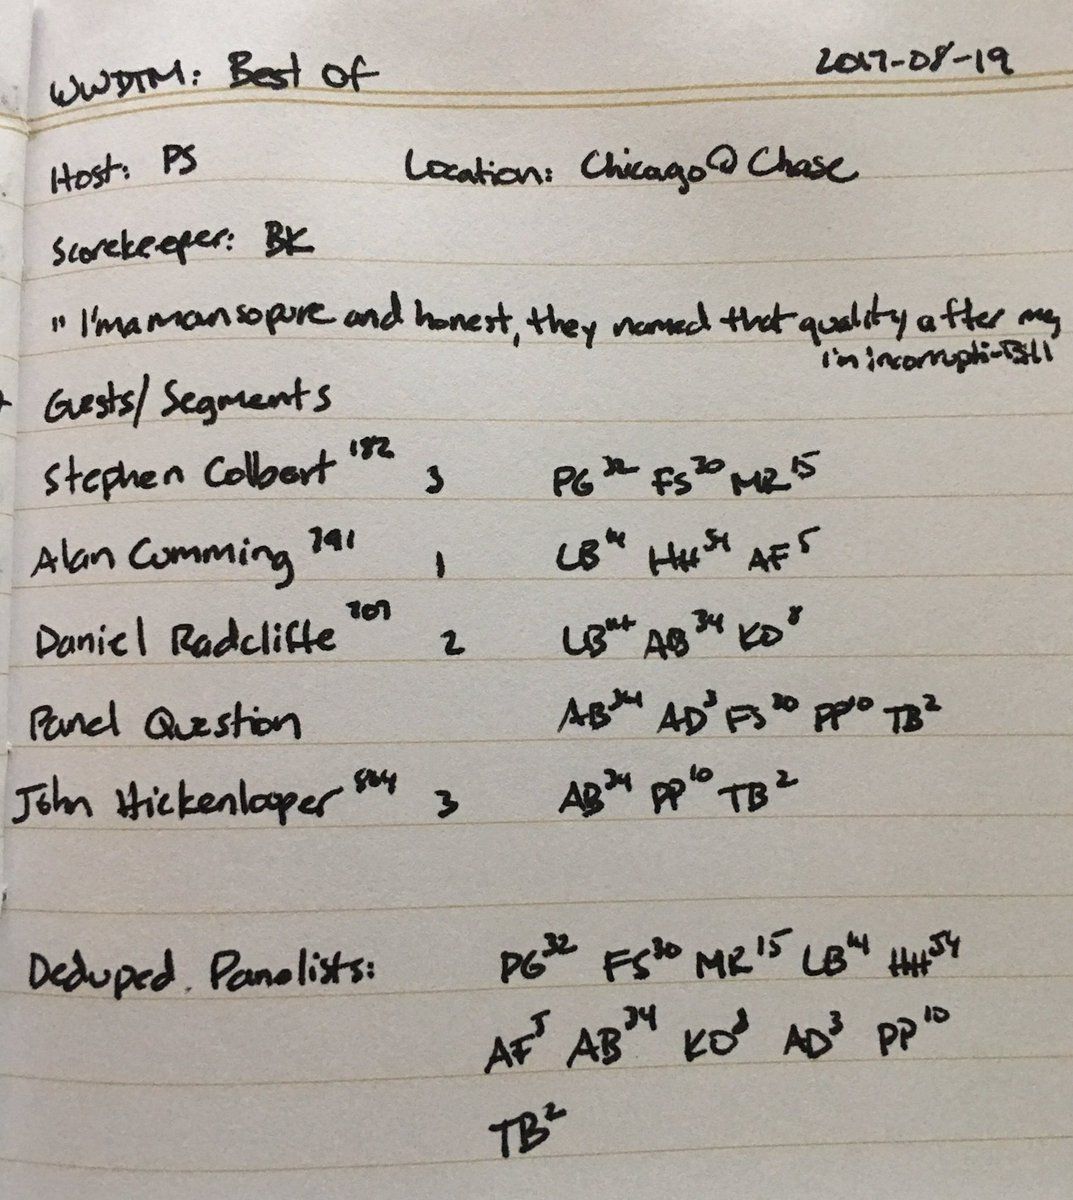 WWDTM: Best Of 2017-08-19
Host: PS Location: Chicago @ Chase
Scorekeeper: BK
" I'm a man so pure and honest, they named that quality after me,
I'm incorrupti-Bill
Guests/Segments
Stephen Colbert 182 3 PG 32 FS 30 MR 15
Alan Cumming 791 1 LB 14 HH 54 AF 5
Daniel Radcliffe 707 2 LB 14 AB 34 KO 8
Panel Question AB 34 AD 3 FS 30 PP 10 TB 2
John Hickenlooper 864 3 AB 34 PP 10 TB 2
Deduped Panelists: PG 32 FS 30 MR 15 LB 14 HH 54
AF 5 AB 34 KO 8 AD 3 PP 10
TB 2